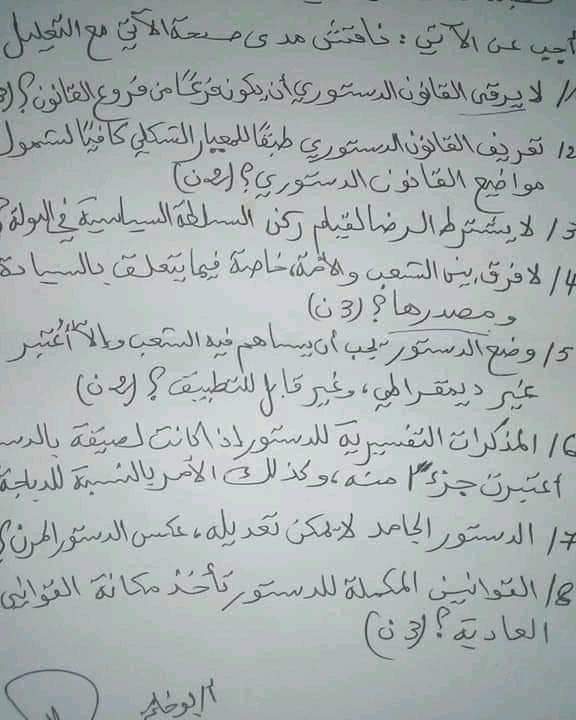 أجيب عن الآتي: ناقش مدى صحة الآتي مع التعليل
1/ لا يرقى القانون الدستوري أن يكون فرعًا من فروع القانون؟
2/ تعريف القانون الدستوري طبقًا للمعيار الشكلي كافيًا لشمول
مواضيع القانون الدستوري؟ (2ن)
3/ لا يشترط الرضا لقيام ركن السلطة السياسية في الدولة؟
4/ لا فرق بين الشعب والأمة، خاصة فيما يتعلق بالسيادة
ومصدرها؟ (3ن)
5/ وضع الدستور يجب أن يساهم فيه الشعب وإلا أُعتبر
غير ديمقراطي، وغير قابل للتطبيق؟ (2ن)
6/ المذكرات التفسيرية للدستور إذا كانت لصيقة بالدس
اعتبرت جزءًا منه، وكذلك الأمر بالنسبة للديباجة
7/ الدستور الجامد لا يمكن تعديله، عكس الدستور المرن؟
8/ القوانين المكملة للدستور تأخذ مكانة القوانين
العادية؟ (3ن)